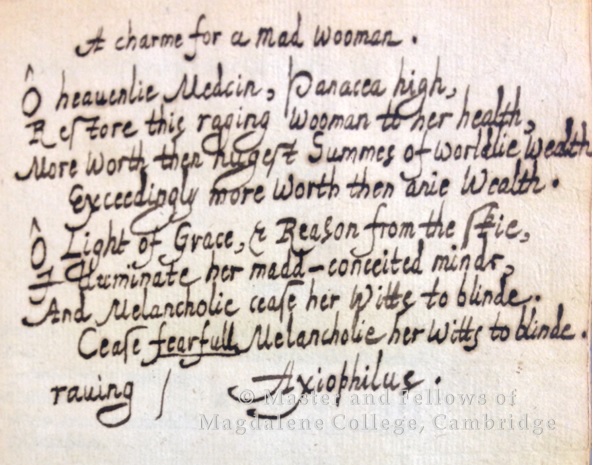 A charme for a mad wooman.
Ô heauenlie Medcin, Panacea high,
Restore this raging wooman to her health,
More worth then hugest Summes of worldlie wealth
Exceedingly more worth then anie wealth.
Ô Light of Grace, & Reason from the skie,
Illuminate her madd-conceited minde,
And Melancholie cease her witts to blinde.
Cease fearfull Melancholie her witts to blinde.
rauing / Axiophilus.
© Master and Fellows of
Magdalene College, Cambridge